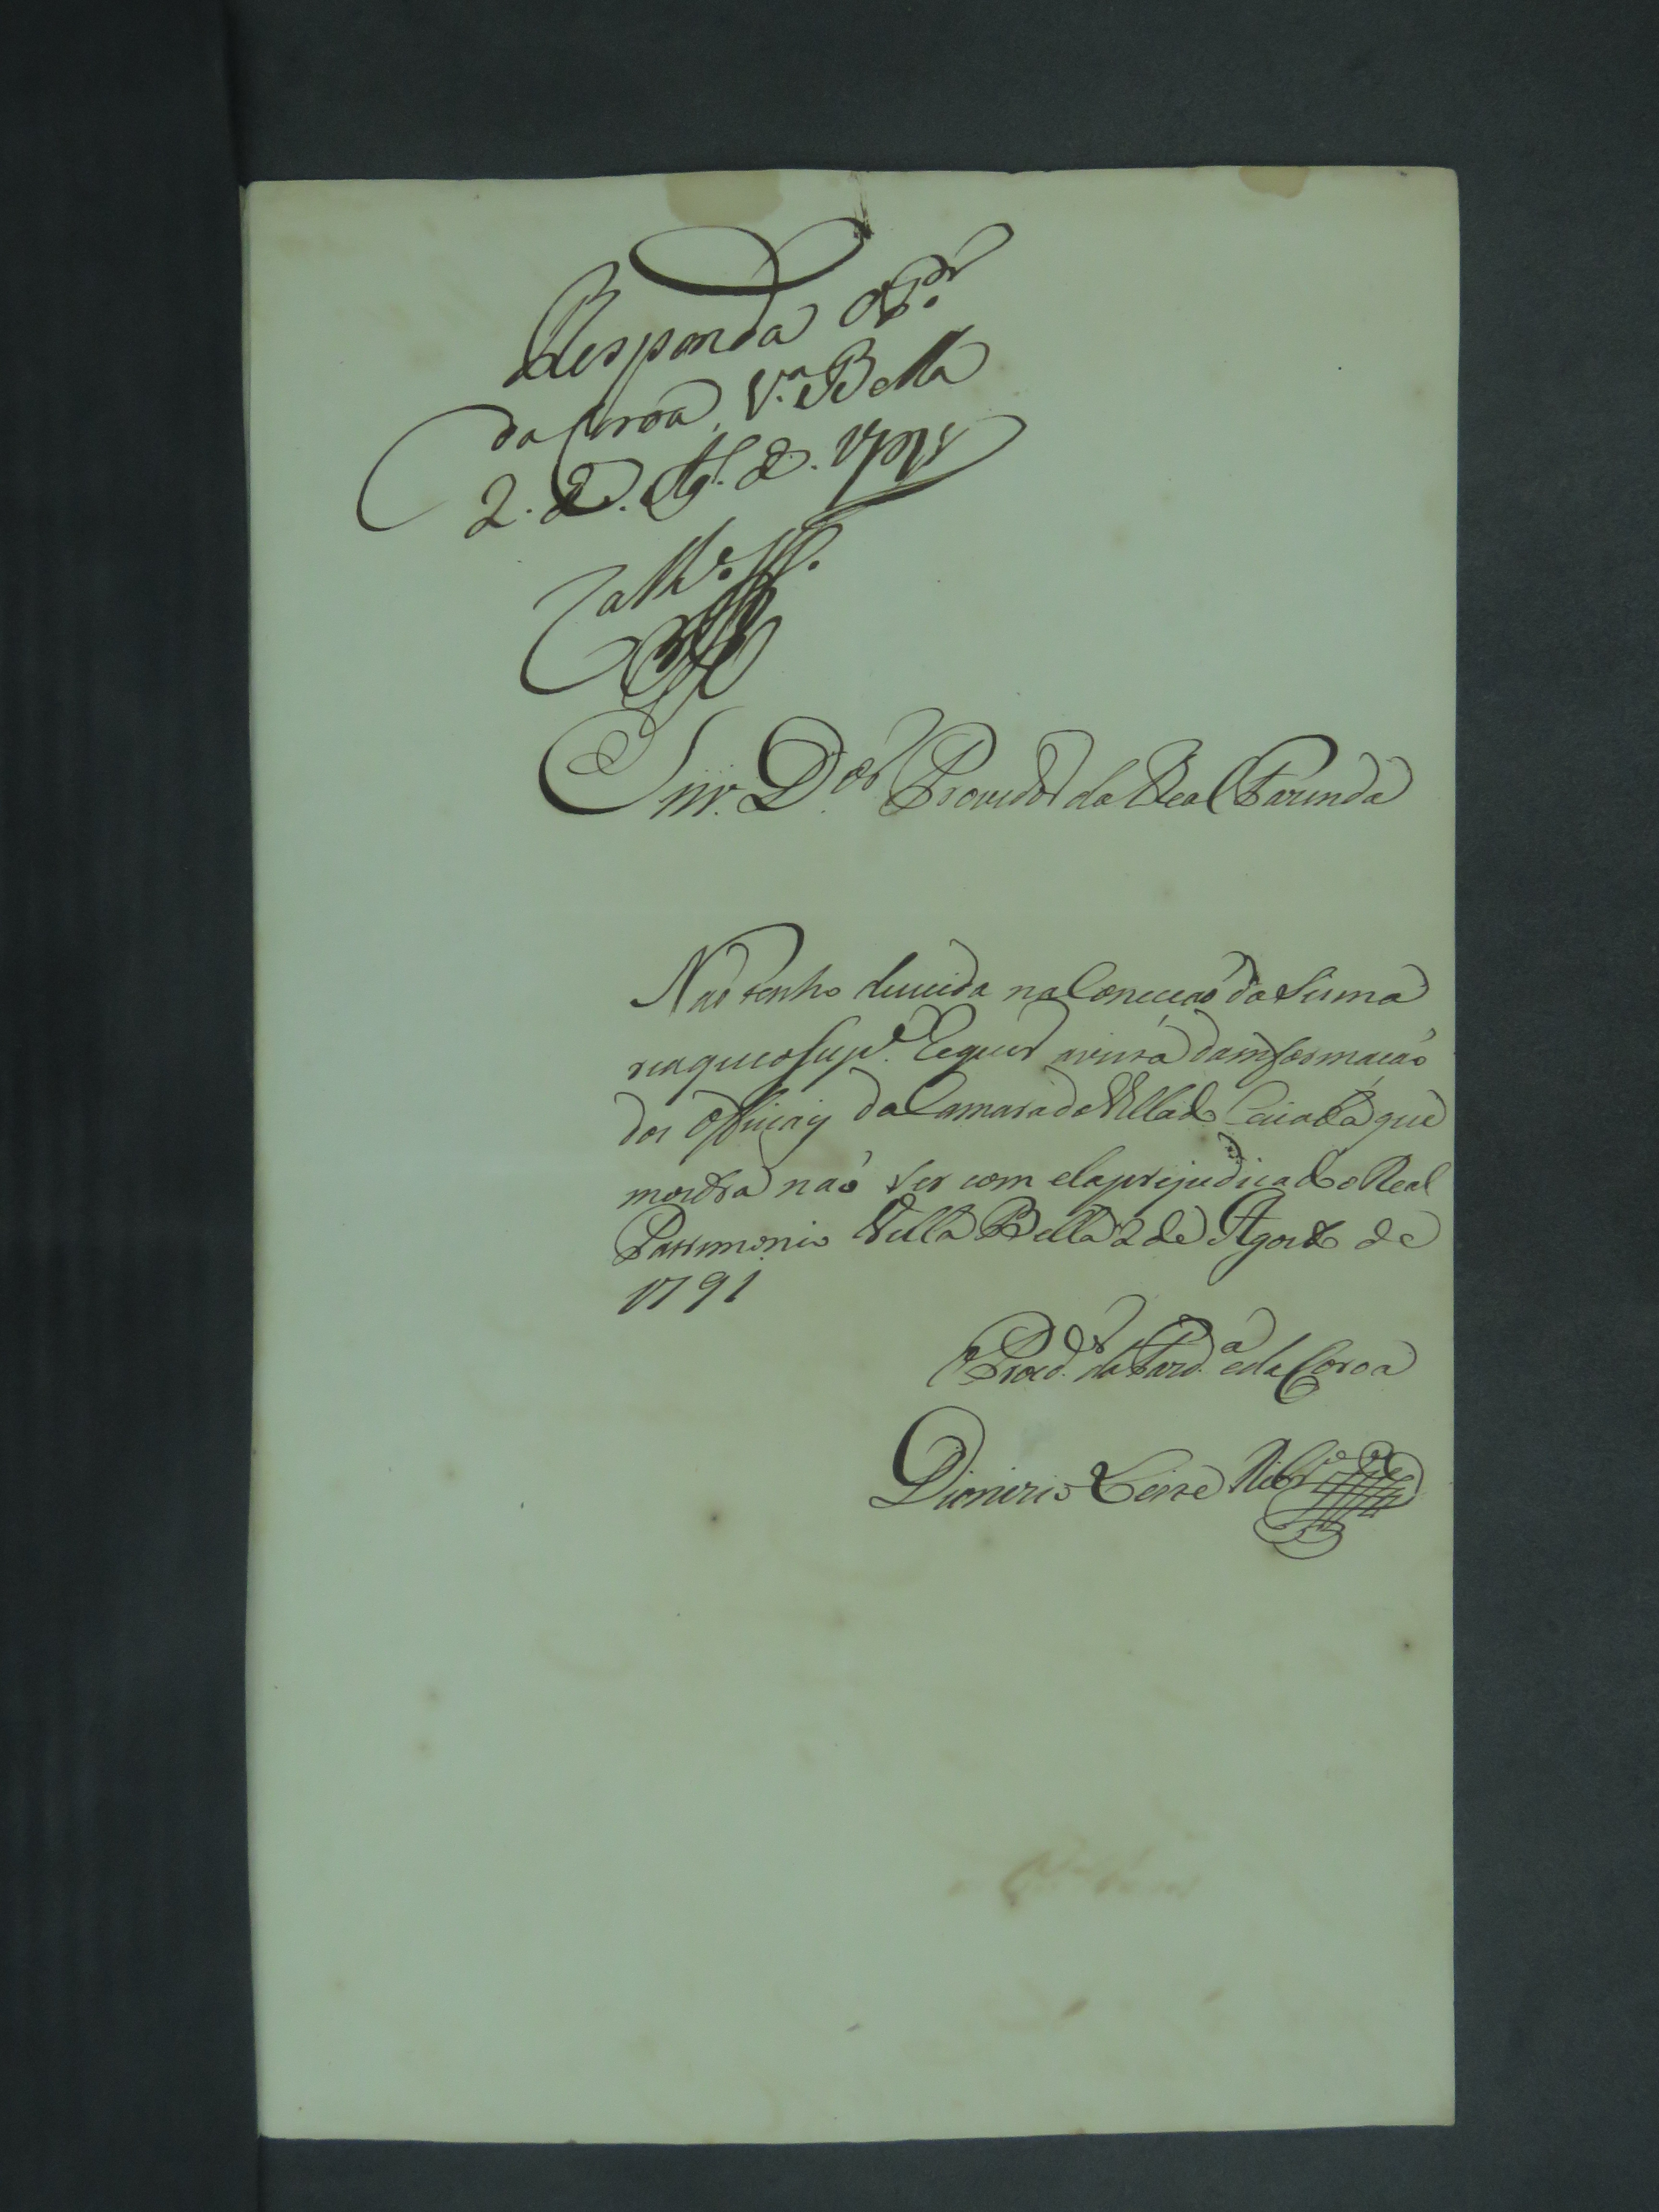 Responda o P.dor
da Coroa, V.a Bella
2. de. Ag.to de. 1791
Snr. D.or Provedor da Real Fazenda
Não tenho duvida na Conceção da Sisma
ria que o Sup.e Requer avista da informação
dos Officiaes da Camara da Villa de Cuiabá que
mostra não ser com ela prejudicado o Real
Patrimonio Villa Bella 2 de Agosto de
1791
Procd.or da Fazd.a e da Coroa
Dionizio Leite Rib.ro